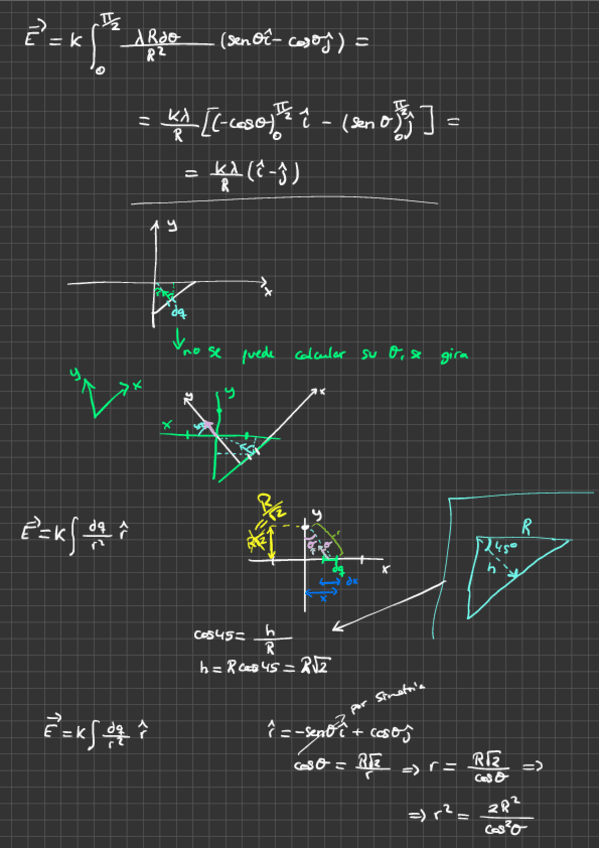 E⃗ = k ∫₀^(π/2) λRdθ/R² (senθî - cosθĵ) =
= kλ/R [(-cosθ)₀^(π/2) î - (senθ)₀^(π/2) ĵ] =
= kλ/R (î - ĵ)
y
x
dq
no se puede calcular su θ, se gira
y x
y y x
x
R/√2
y
E⃗ = k ∫ dq/r² r̂
r
θ θ
dq
x
dx
x
R
45º
h
cos45 = h/R
h = Rcos45 = R√2
por simetría
E⃗ = k ∫ dq/r² r̂
r̂ = -senθî + cosθĵ
cosθ = R√2/r ⇒ r = R√2/cosθ ⇒
⇒ r² = 2R²/cos²θ